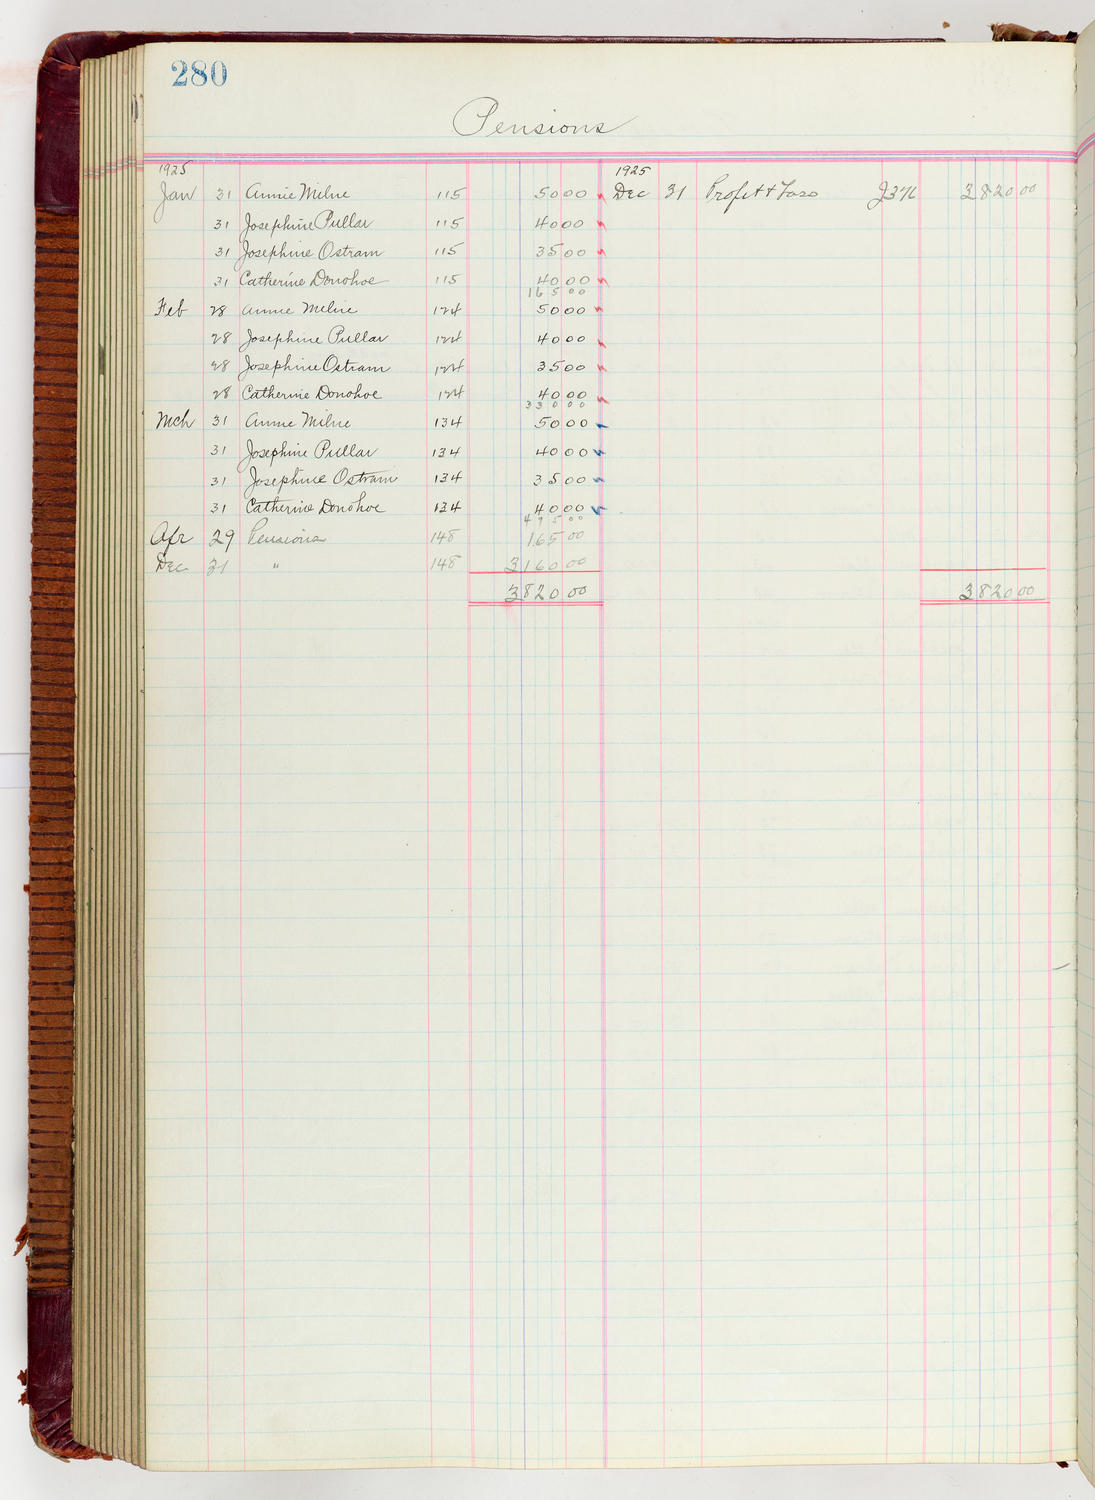 280
Pensions
1925 1925
Jan 31 Annie Milne 115 5000 Dec 31 Profit & Loss J376 382000
31 Josephine Pullar 115 4000
31 Josephine Ostram 115 3500
31 Catherine Donohoe 115 4000
16500
Feb 28 Annie Milne 124 5000
28 Josephine Pullar 124 4000
28 Josephine Ostram 124 3500
28 Catherine Donohoe 124 4000
33000
Mch 31 Annie Milne 134 5000
31 Josephine Pullar 134 4000
31 Josephine Ostram 134 3500
31 Catherine Donohoe 134 4000
49500
Apr 29 Pensions 148 16500
Dec 31 " 148 316000
382000 382000